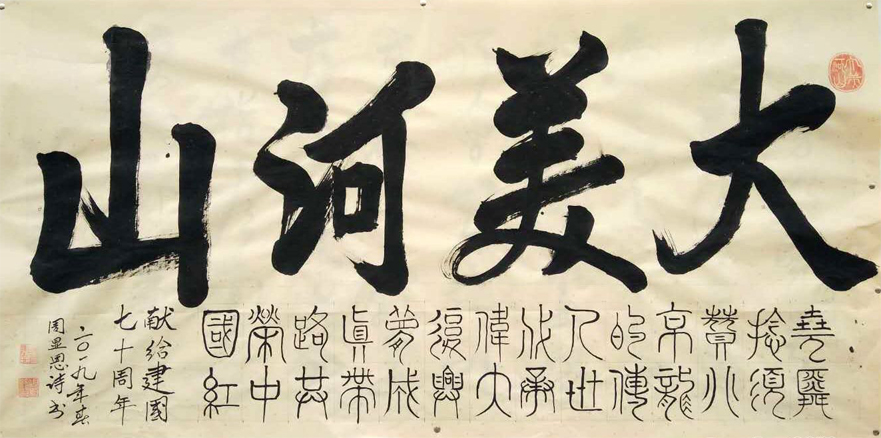 大美河山
堯舜
捻須
贊小
京龍
的傳
人世
代承
偉大
復興
夢成
真帶
路共
榮中
國紅
献给建國
七十周年
二〇一九年春
周显恩诗书